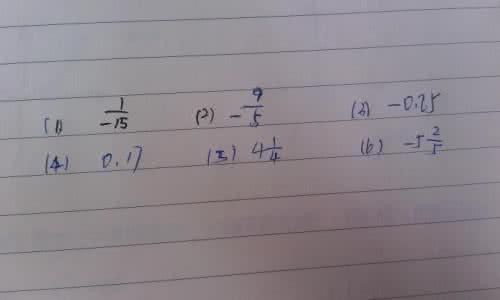 (1) 1/-15 (2) -9/5 (3) -0.25
(4) 0.17 (5) 4 1/4 (6) -5 2/5